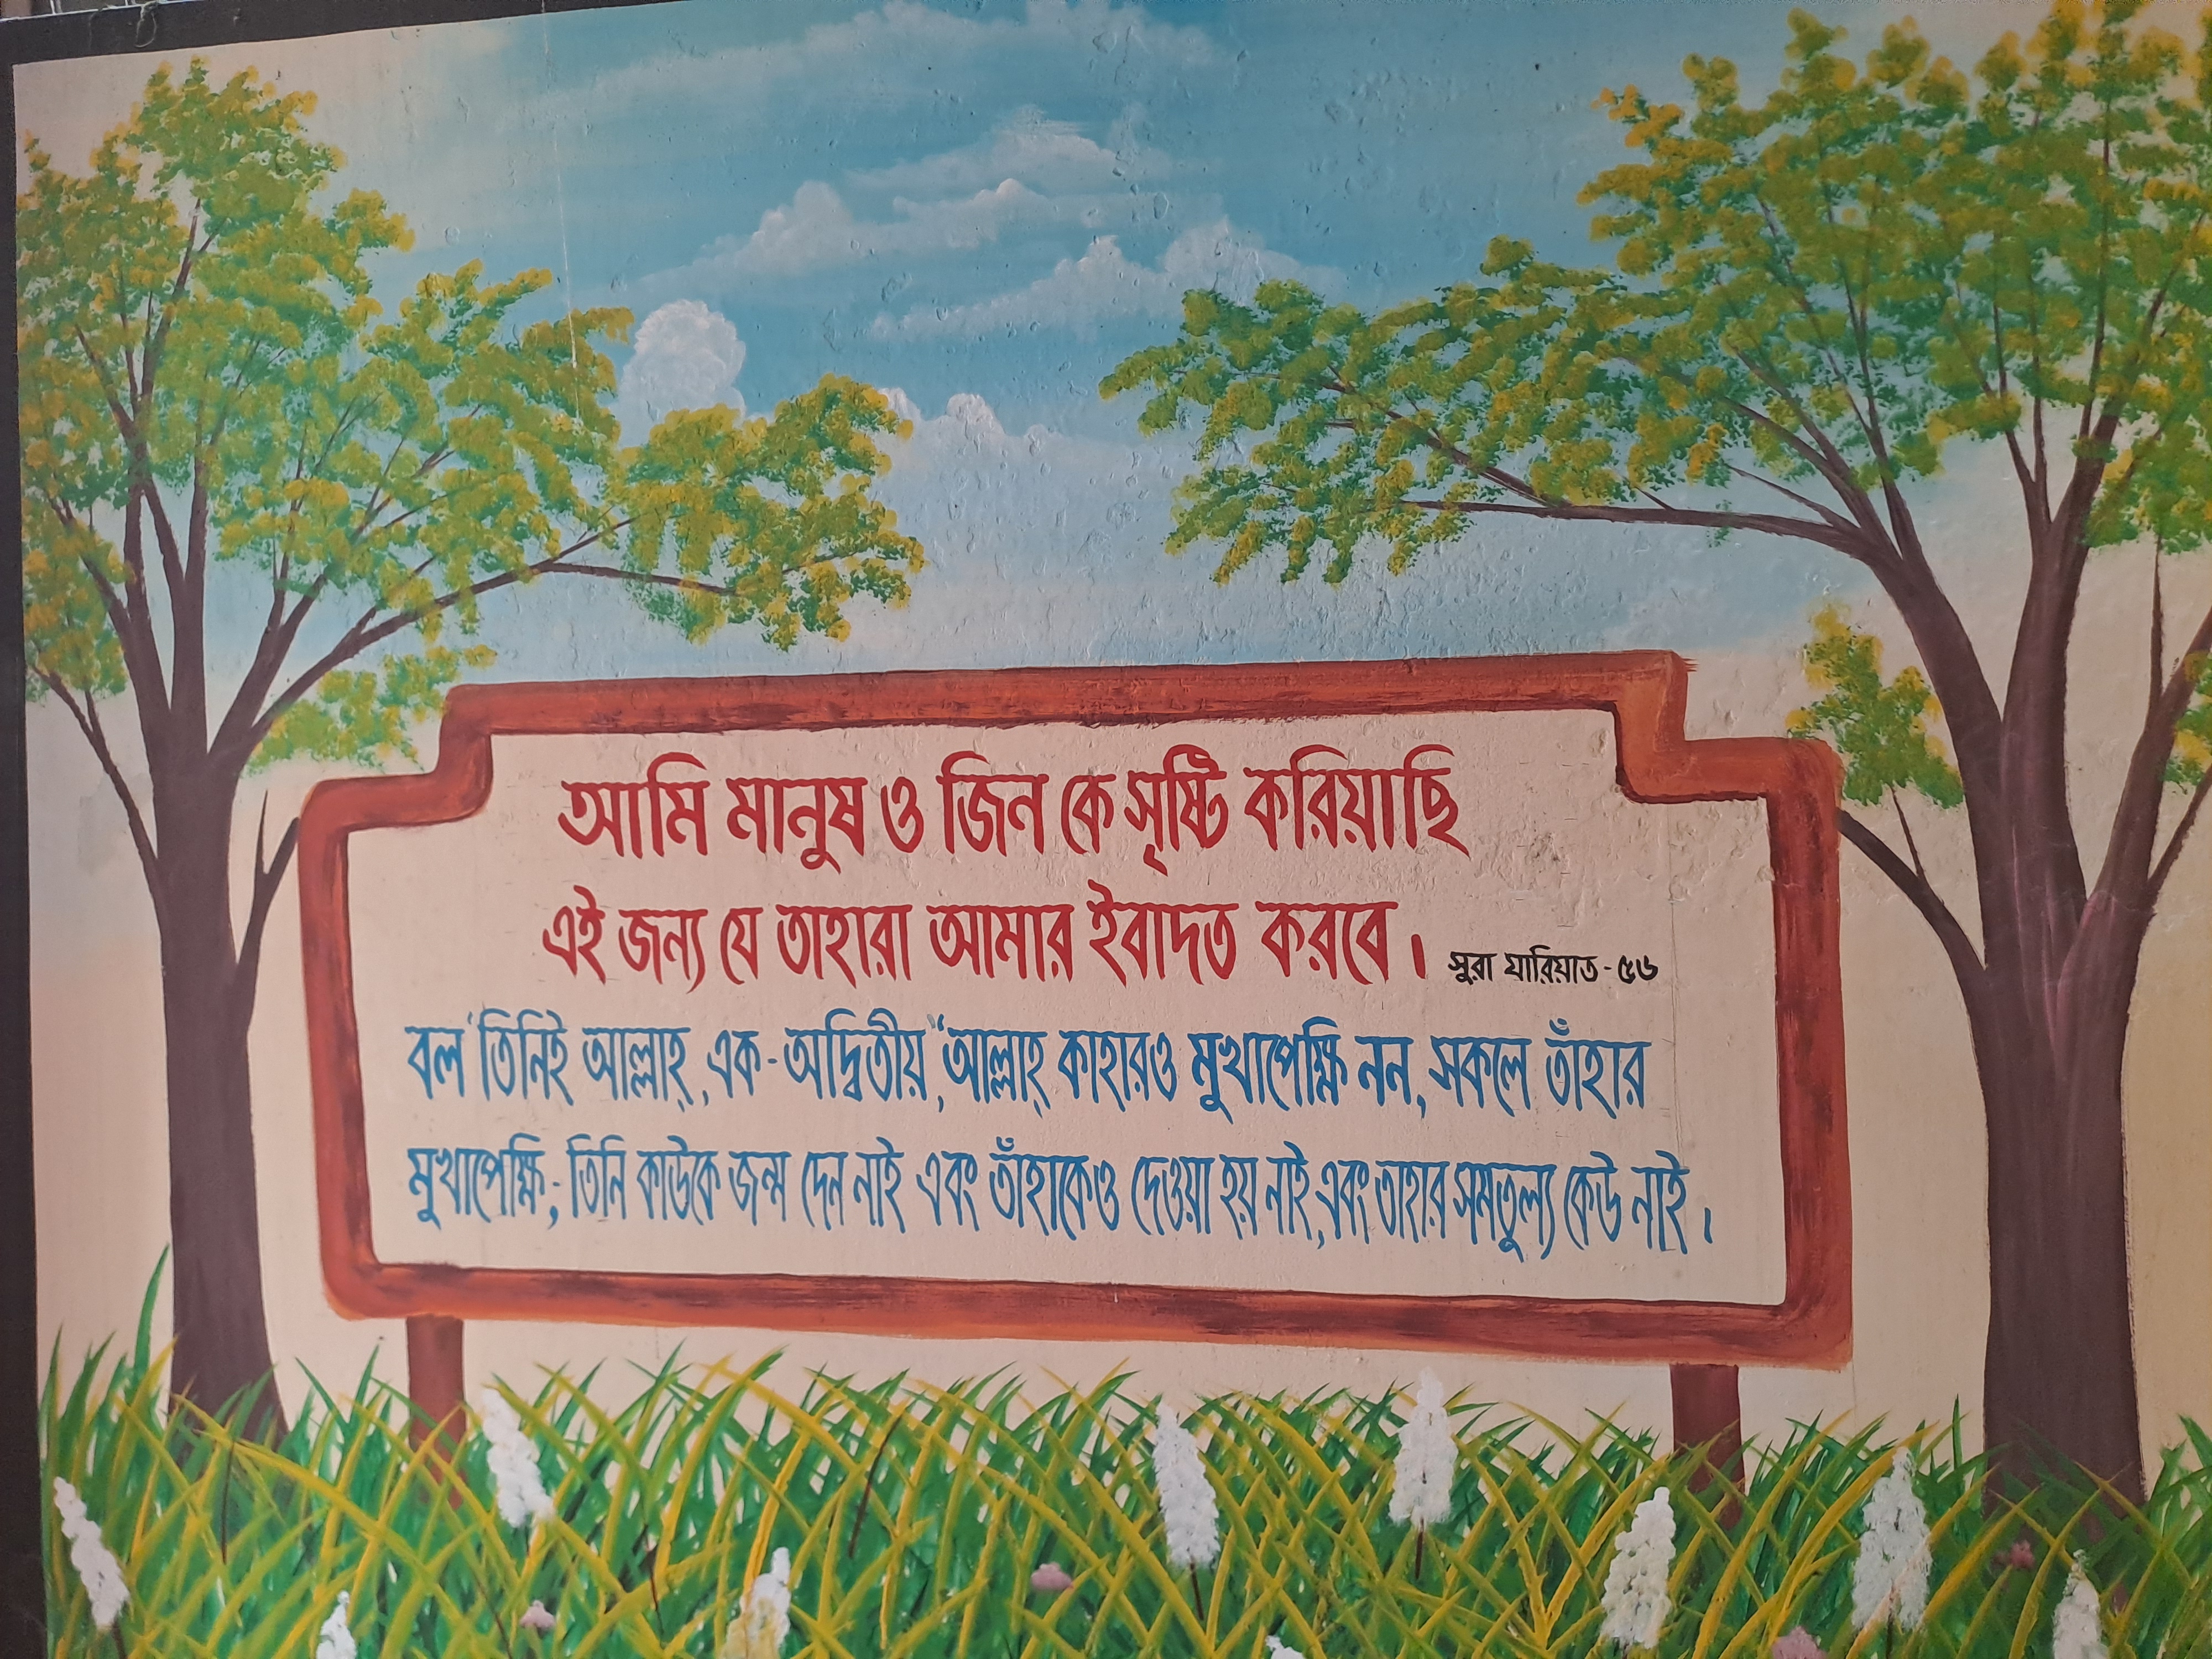 আমি মানুষ ও জিন কে সৃষ্টি করিয়াছি
এই জন্য যে তাহারা আমার ইবাদত করবে।
সুরা যারিয়াত-৫৬
বল 'তিনিই আল্লাহ্, এক-অদ্বিতীয়,"আল্লাহ্ কাহারও মুখাপেক্ষি নন, সকলে তাঁহার
মুখাপেক্ষি;-তিনি কাউকে জন্ম দেন নাই এবং তাঁহাকেও দেওয়া হয় নাই,এবং তাহার সমতুল্য কেউ নাই।